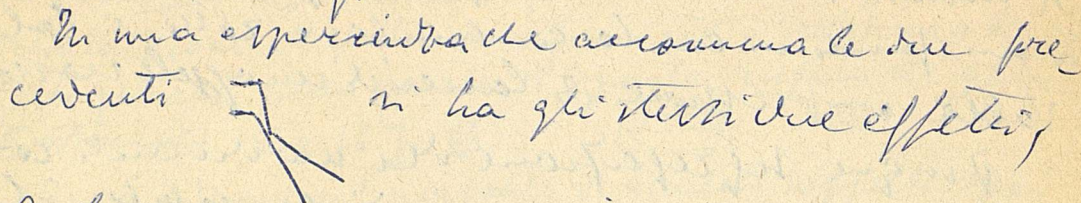 In una esperienza che accomuna le due pre-
cedenti si ha gli stessi due effetti,